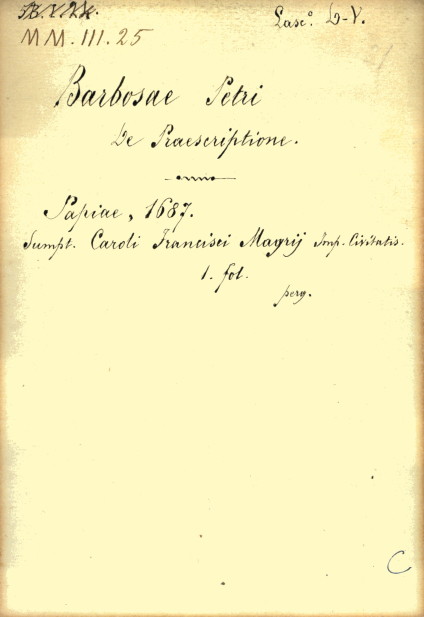 Lasc.º D-V.
MM. III. 25
Barbosae Petri
De Praescriptione.
Papiae, 1687.
Sumpt. Caroli Francisci Magrij Imp. Civitatis.
1. fol.
perg.
C